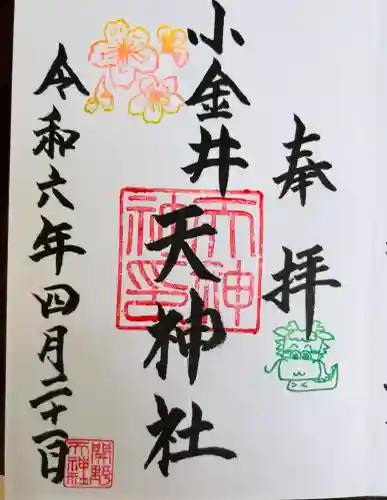 奉拝
小金井天神社
天神社印
令和六年四月二十一日